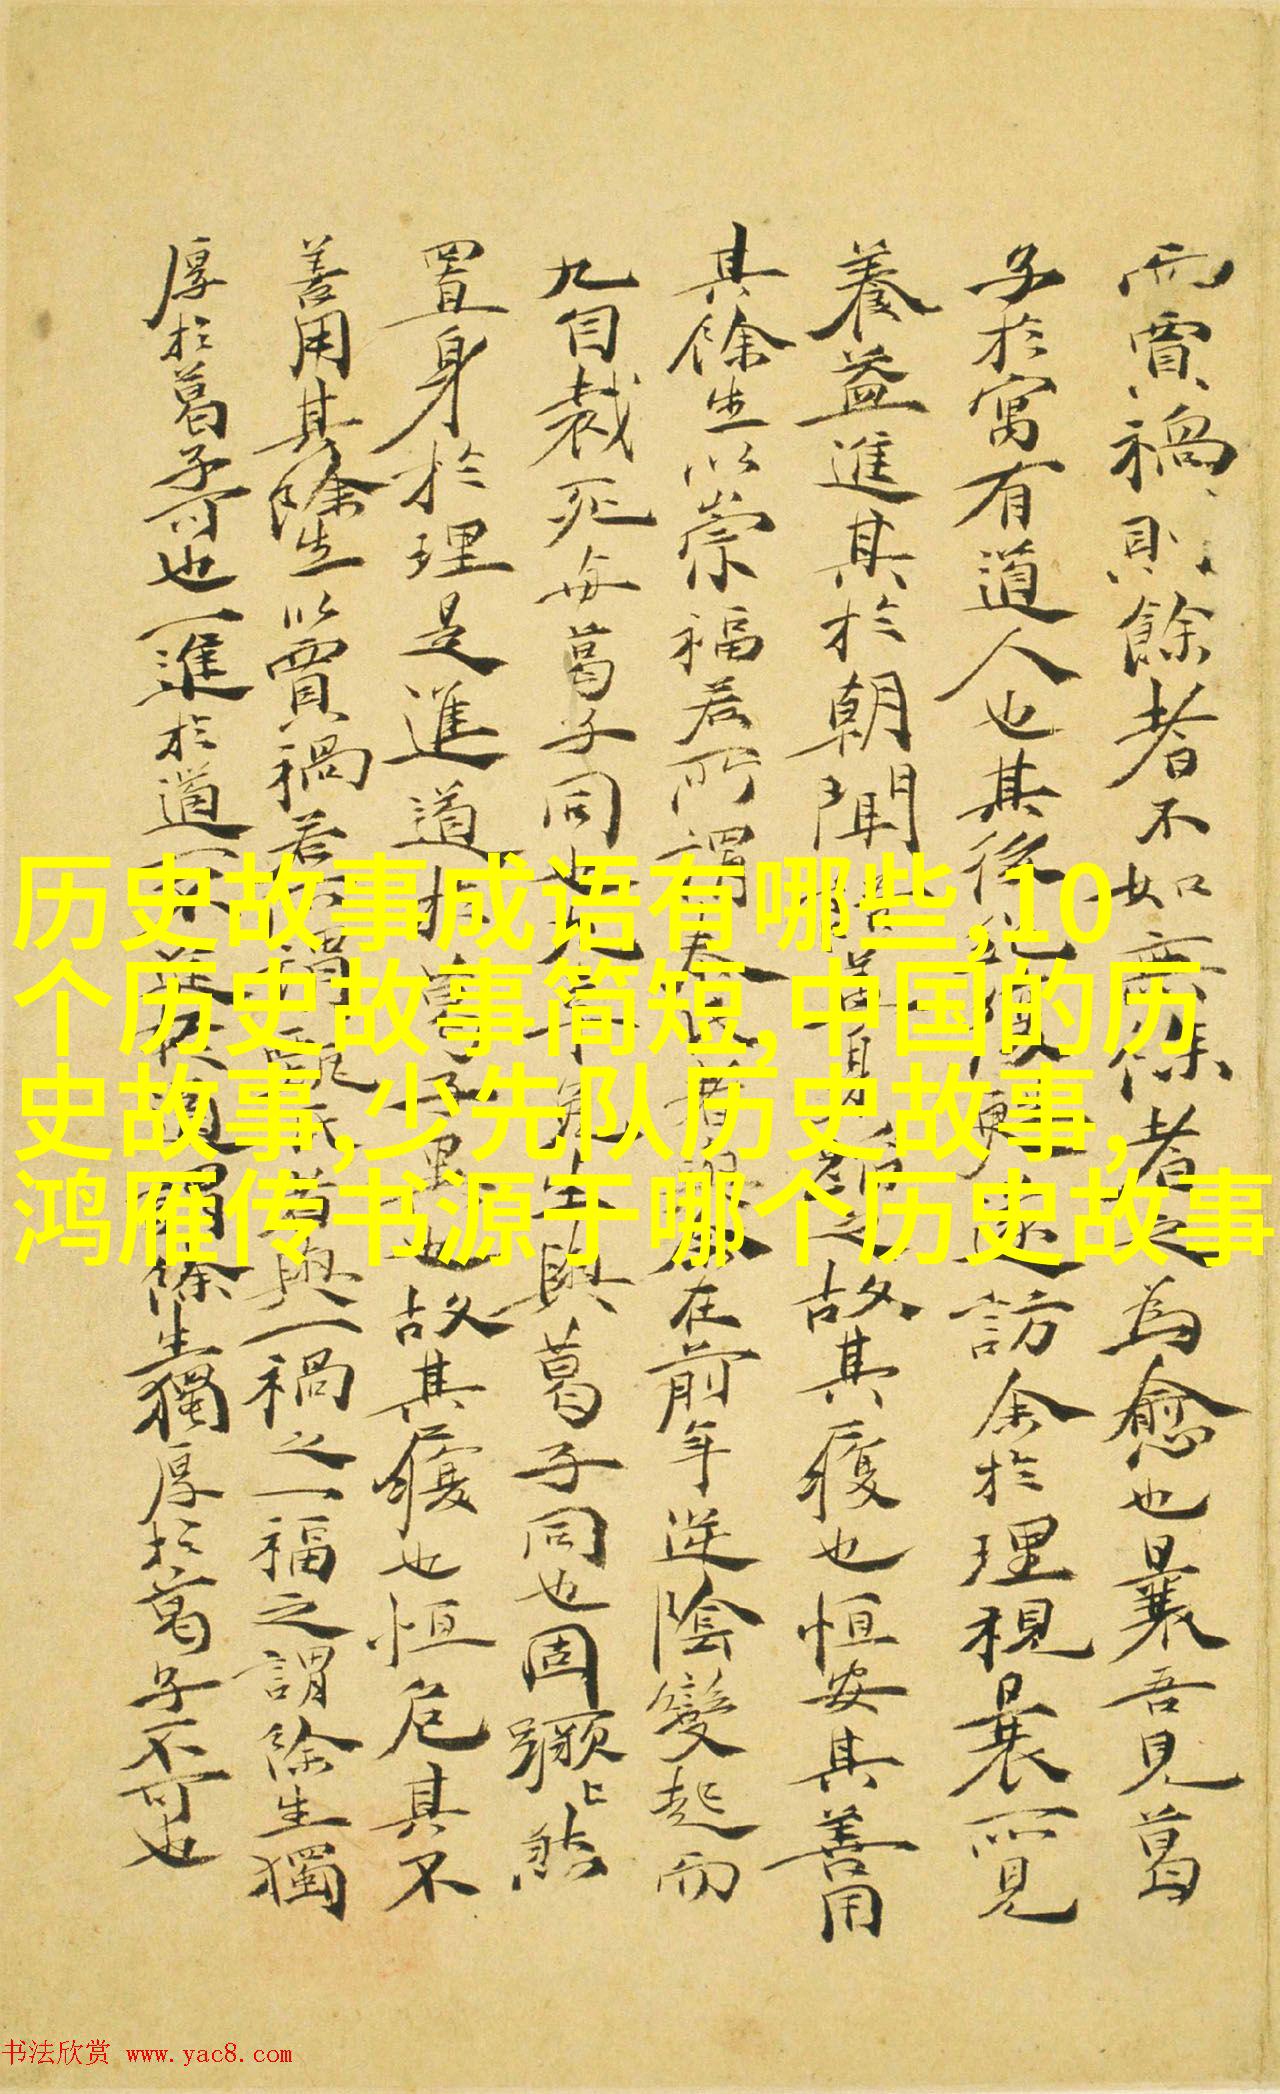 而賈禍則餘者不如無餘者之為愈也曩吾見葛
子於寓有道人也其後訪余於理視曩所見
養益進其於朝聞之故其履也恒安其善用
其餘生以崇福若所謂者在前年逆陰變起而
九自裁死每葛子同也生與葛子同也固蹶蹶然
置身於理是進道於葛子也故其履也恒危其不
善用其餘生以賈禍若與一禍之一福之謂餘生獨
厚於葛子可也一進於道一不進於道謂餘生獨厚於葛子不可也
历史故事成语有哪些,10
个历史故事简短,中国的历
史故事,少先队历史故事,
鸿雁传书源于哪个历史故事
书法欣赏 www.yac8.com